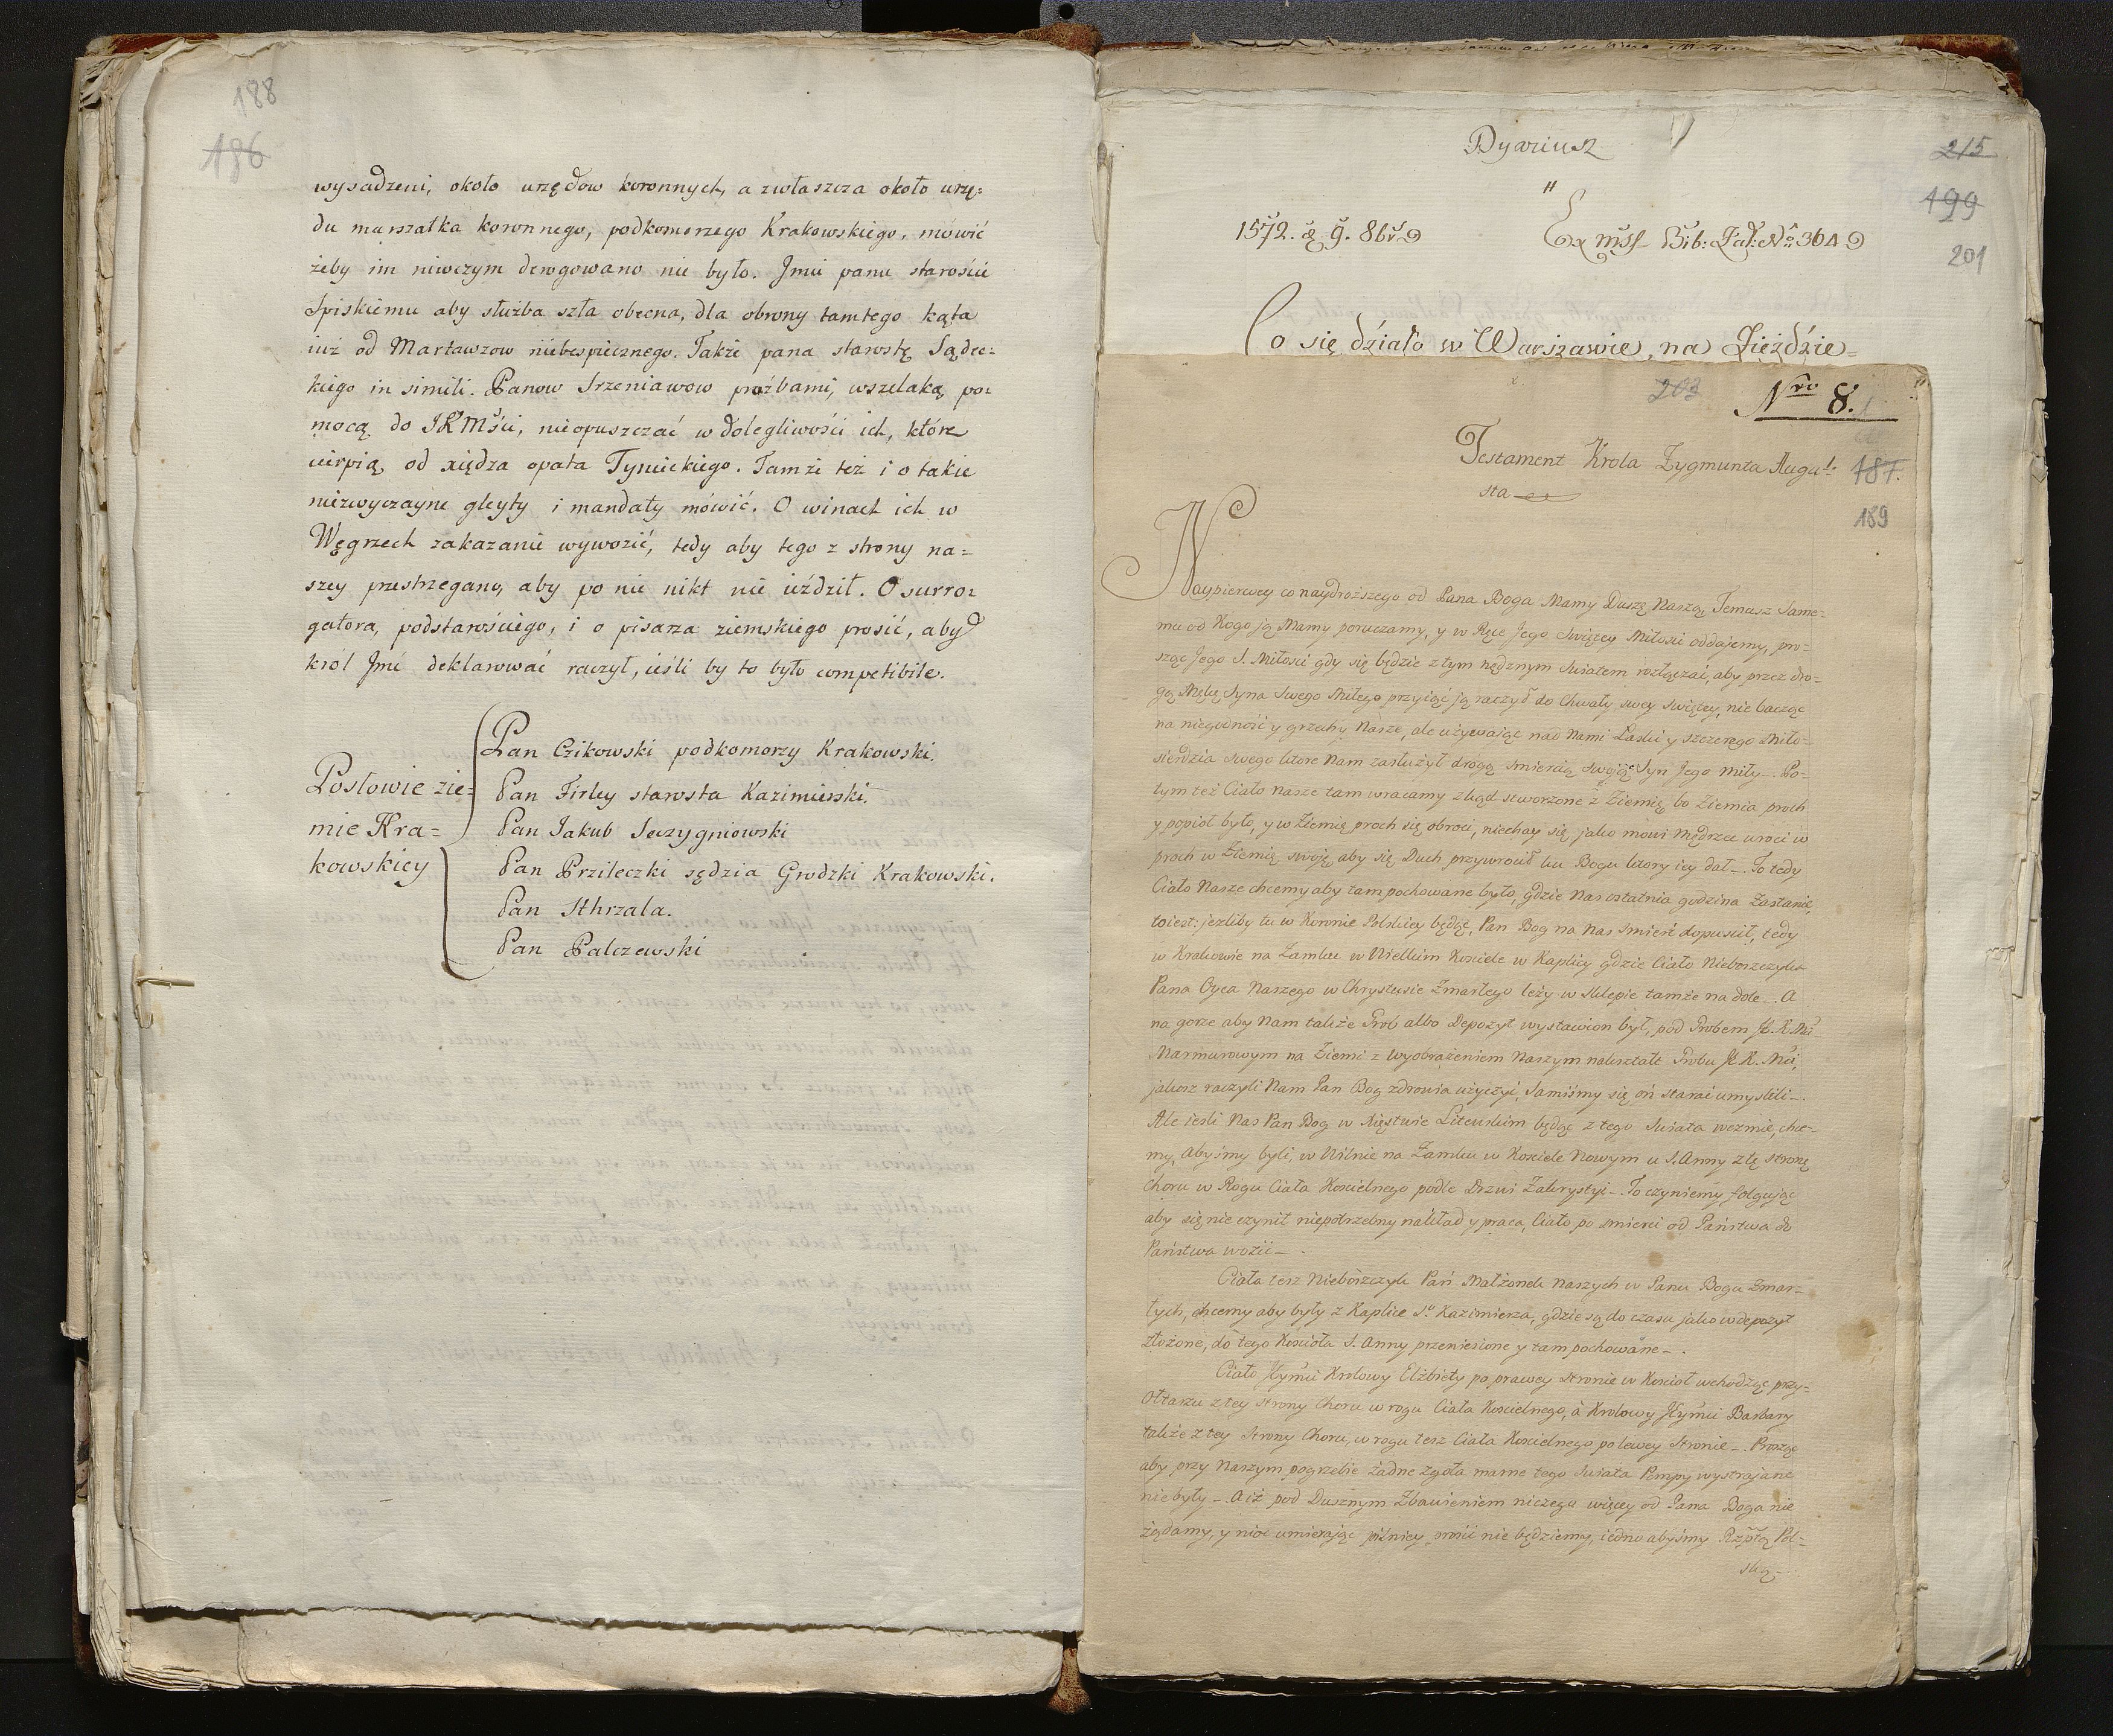 188
186
wysadzeni, około urzędow koronnych, a zwłaszcza około urzę=
du marszałka koronnego, podkomorzego Krakowskiego, mówić
żeby im niwczym derogowano nie było. Jmći panu starośćie
Spiskiemu aby służba szła obecna, dla obrony tamtego kąta
iuż od Martawzow niebespiecznego. Także pana starostę Sądec=
kiego in simili. Panow Srzeniawow proźbami, wszelaką po=
mocą do JKMśći, nieopuszczać w dolegliwośći ich, które
cirpią od xiędza opata Tynieckiego. Tamże też i o takie
niezwyczayne gleyty i mandaty mówić. O winach ich w
Węgrzech zakazanie wywozić, tedy aby tego z strony na=
szey przestrzegano, aby po nie nikt nie ieździł. O surro=
gatora, podstarośćiego, i o pisarza ziemskiego prosić, aby
król Jmć deklarować raczył, ieśli by to było competibile.
Posłowie zie=
mie Kra=
kowskiey
Pan Czikowski podkomorzy Krakowski.
Pan Firley starosta Kazimierski.
Pan Jakub Seczygniowski
Pan Przileczki sędzia Grodzki Krakowski.
Pan Sthrzala.
Pan Palczewski
Dyariusz
215
199
201
1572. 9. 8br
Ex mss Bib: Zał: No 304
Co się działo w Warszawie, na Zieździe=
203
Nro 8.
Testament Krola Zygmunta Augu=
sta
187.
189
Naypierwey co naydroższego od Pana Boga Mamy Duszę Naszą, Temusz Same=
mu od Kogo ją Mamy poruczamy, y w Ręce Jego Swięcey Miłosci oddajemy, pro=
sząc Jego S. Miłosci gdy się będzie z tym nędznym Swiatem rozłączać, aby przez dro=
gą Mękę Syna Swego Miłego przyiąć ją raczył do Chwały swey swięcey, nie bacząc
na niegodność y grzechy Nasze, ale używając nad Nami Łaski y szczerego Miło=
sierdzia swego ktore Nam zasłużył drogą smiercią swoją Syn Jego miły. Po=
tym też Ciało nasze tam wracamy zkąd stworzone z Ziemię, bo Ziemia proch
y popioł było, y w Ziemię proch się obroci, niechay się, jako mowi Mędrzec wroci w
proch w Ziemię swoję, aby się Duch przywrocił ku Bogu ktory icy dał. To tedy
Ciało Nasze chcemy aby tam pochowane było, gdzie Nas ostatnia godzina Zastanie,
to iest: jezliby tu w Koronie Polskiey będąc, Pan Bog na Nas Smierć dopuscił, tedy
w Krakowie na Zamku w Wielkim Kosciele w Kaplicy gdzie Ciało Nieboszczyka
Pana Oyca Naszego w Chrystusie Zmarłego leży w sklepie tamże na dole. A
na gorze aby Nam także Grob albo Depozyt wystawion był, pod Grobem J. K. Mci
Marmurowym na Ziemi z wyobrażeniem Naszym nakształt Grobu J. K. Mci,
jakosz raczyli Nam Pan Bog zdrowia użyczyć, Samiśmy się oń starać umyslili.
Ale iesli Nas Pan Bog w Xięstwie Litewskim będąc z tego Swiata wezmie, chce=
my, abyśmy byli, w Wilnie na Zamku w Kosciele Nowym u S. Anny z tę stronę
Choru w Rogu Ciała Koscielnego podle Drzwi Zakrystyi. To czyniemy folgując
aby się nie czynił niepotrzebny nakład y praca, Ciało po smierci od Państwa do
Państwa wozić.
Ciała tesz Nieboszczyk Pań Małżonek Naszych w Panu Bogu Zmar=
łych, chcemy aby były z Kaplice So Kazimierza, gdzie są do czasu jako w depozyt
złożone, do tego Koscioła S. Anny przeniesione y tam pochowane.
Ciało Jeymći Krolowy Elżbiety po prawey Stronie w Kościoł wchodząc przy=
Ołtarzu z tey strony Choru w rogu Ciała Koscielnego, à Krolowy Jeymći Barbary
także z tey Strony Choru, w rogu tesz Ciała Koscielnego po lewey Stronie. Proszę
aby przy Naszym pogrzebie żadne zgoła marne tego Swiata Pompy wystrajane
nie były. A iż pod Dusznym Zbawieniem niczego więcy od Pana Boga nie
żądamy, y nioc umierając pilniey prosić nie będziemy, iedno abyśmy Rzptą Pol=
ską